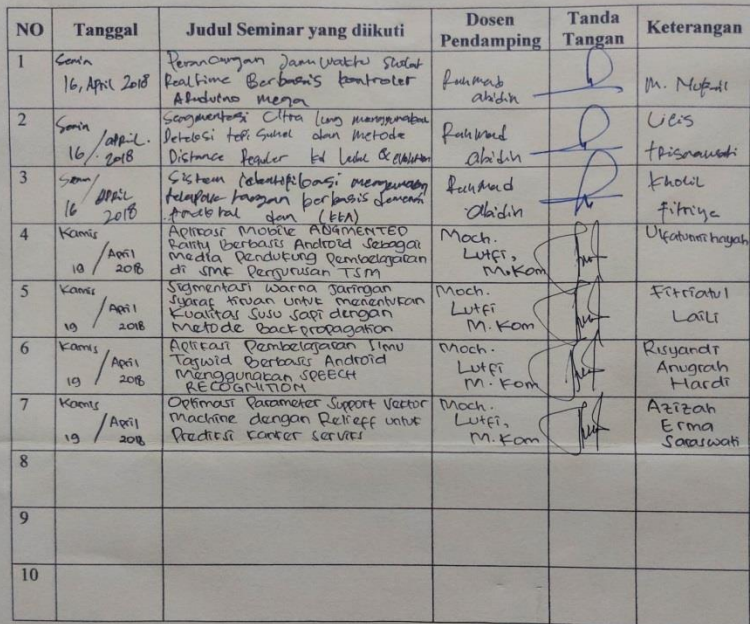 NO Tanggal Judul Seminar yang diikuti Dosen Pendamping Tanda Tangan Keterangan
1
Senin
16, April 2018
Perancangan Jam Waktu Sholat
Realtime Berbasis kontroler
Arduino mega
Rahmad
abidin
M.
2
Senin
16/April. 2018
Segmentasi Citra lung menggunakan
Deteksi tepi Suhel dan metode
Distance Reguler
Rahmad
abidin
Licis
3
Senin
16/April 2018
Sistem identifikasi menggunakan
telapak tangan berbasis dimensi
dan
Rahmad
abidin
Kholil
Fitriya
4
Kamis
19/April 2018
Aplikasi Mobile AUGMENTED
Rality Berbasis Android Sebagai
Media Pendukung Pembelajaran
di SMK Pergurusan TSM
Moch.
Lutfi,
M.Kom
Ulfatunnihayah
5
Kamis
19/April 2018
Sigmentasi Warna Jaringan
Syaraf tiruan untuk menentukan
Kualitas Susu Sapi dengan
Metode Backpropagation
Moch.
Lutfi
M.Kom
Fitriatul
Laili
6
Kamis
19/April 2018
Aplikasi Pembelajaran Ilmu
Tajwid Berbasis Android
Menggunakan SPEECH
RECOGNITION
Moch.
Lutfi
M.Kom
Risyandi
Anugrah
Hardi
7
Kamis
19/April 2018
Optimasi Parameter Support Vektor
Machine dengan Relieff untuk
Prediksi kanker servirs
Moch.
Lutfi,
M.Kom
Azizah
Erma
Saraswati
8
9
10